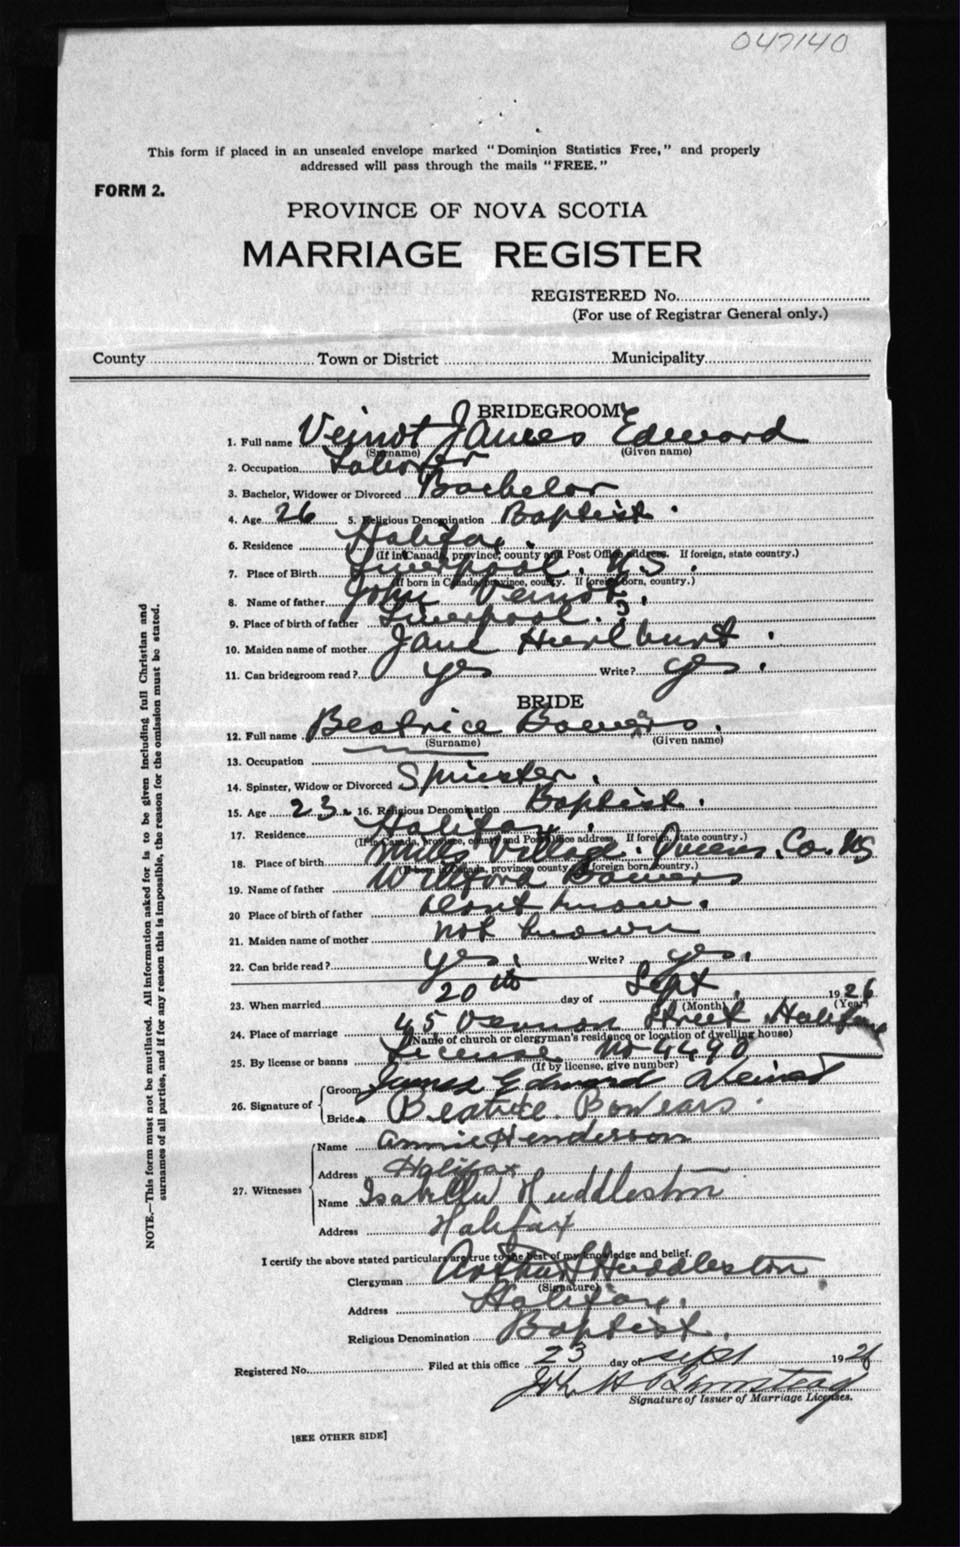 047140
This form if placed in an unsealed envelope marked "Dominion Statistics Free," and properly
addressed will pass through the mails "FREE."
FORM 2.
PROVINCE OF NOVA SCOTIA
MARRIAGE REGISTER
REGISTERED No.
(For use of Registrar General only.)
County Town or District Municipality
BRIDEGROOM
1. Full name Veinot James Edward
(Surname) (Given name)
2. Occupation Laborer
3. Bachelor, Widower or Divorced Bachelor
4. Age 26 5. Religious Denomination Baptist.
6. Residence Halifax.
(If in Canada, province, county and Post Office address. If foreign, state country.)
7. Place of Birth Liverpool. N.S.
(If born in Canada, province, county. If foreign born, country.)
8. Name of father John Veinot.
9. Place of birth of father Liverpool.
10. Maiden name of mother Jane Hurlburt.
11. Can bridegroom read? yes Write? yes.
BRIDE
12. Full name Beatrice Bowers.
(Surname) (Given name)
13. Occupation
14. Spinster, Widow or Divorced Spinster.
15. Age 23. 16. Religious Denomination Baptist.
17. Residence Halifax.
(If in Canada, province, county and Post Office address. If foreign, state country.)
18. Place of birth Mills Village. Queens. Co. NS
(If born in Canada, province, county. If foreign born, country.)
19. Name of father Wilford Bowers
20 Place of birth of father dont know.
21. Maiden name of mother not known
22. Can bride read? yes. Write? yes.
23. When married 20th day of Sept. 1926
(Month) (Year)
24. Place of marriage 45 Vernon Street Halifax
(Name of church or clergyman's residence or location of dwelling house)
25. By license or banns License No 4490
(If by license, give number)
26. Signature of
Groom James Edward Veinot
Bride Beatrice Bowears.
27. Witnesses
Name Annie Henderson
Address Halifax
Name Isabella Huddleston
Address Halifax
I certify the above stated particulars are true to the best of my knowledge and belief.
Clergyman Arthur Huddleston
(Signature)
Address Halifax.
Religious Denomination Baptist.
Registered No. Filed at this office 23 day of Sept 1926
Signature of Issuer of Marriage Licenses.
[SEE OTHER SIDE]
NOTE.—This form must not be mutilated. All information asked for is to be given including full Christian and
surnames of all parties, and if for any reason this is impossible, the reason for the omission must be stated.